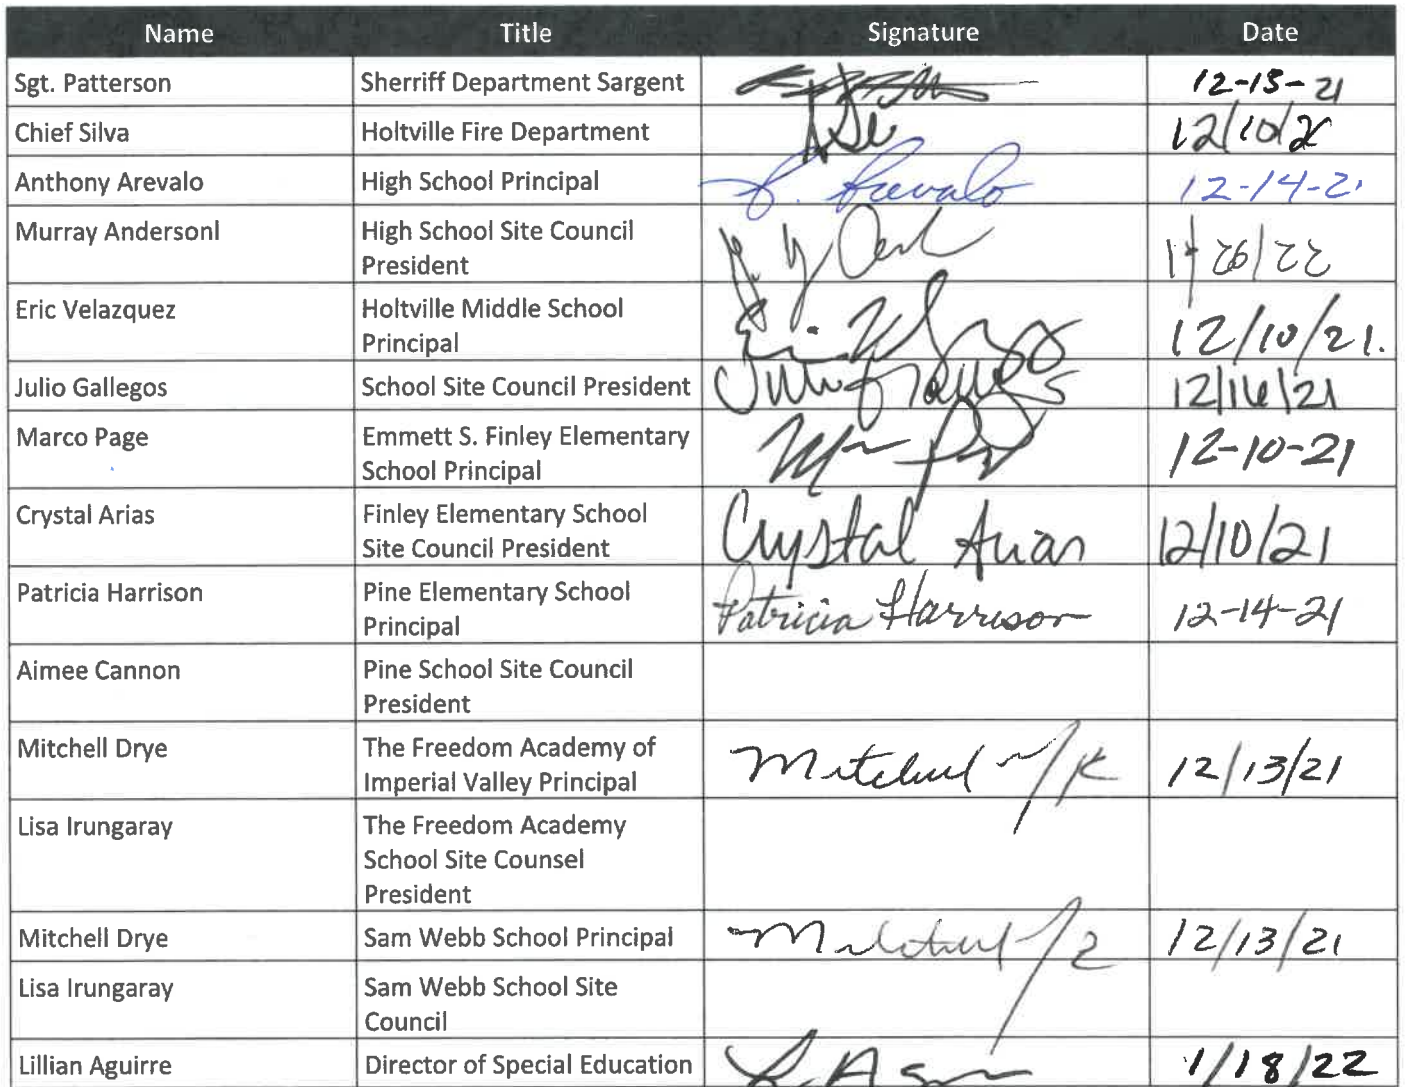 Name Title Signature Date
Sgt. Patterson Sherriff Department Sargent 12-13-21
Chief Silva Holtville Fire Department 12/10/2
Anthony Arevalo High School Principal Arevalo 12-14-21
Murray Andersonl High School Site Council
President
26/22
Eric Velazquez Holtville Middle School
Principal
12/10/21.
Julio Gallegos School Site Council President Julio Gallegos 12/16/21
Marco Page Emmett S. Finley Elementary
School Principal
12-10-21
Crystal Arias Finley Elementary School
Site Council President
Crystal Arias 12/10/21
Patricia Harrison Pine Elementary School
Principal
Patricia Harrison 12-14-21
Aimee Cannon Pine School Site Council
President
Mitchell Drye The Freedom Academy of
Imperial Valley Principal
Mitchell 12/13/21
Lisa Irungaray The Freedom Academy
School Site Counsel
President
Mitchell Drye Sam Webb School Principal Mitchell 12/13/21
Lisa Irungaray Sam Webb School Site
Council
Lillian Aguirre Director of Special Education 1/18/22